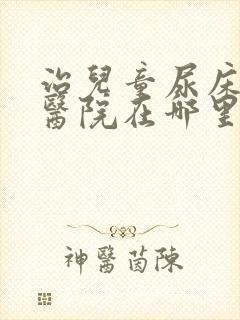 治兒童尿床
醫院在哪里
神醫茵陳